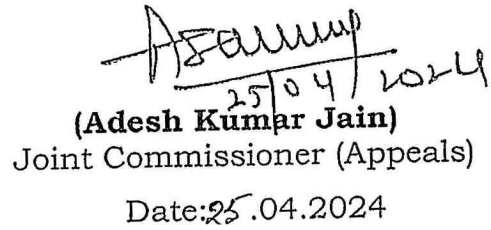 25/04/2024
(Adesh Kumar Jain)
Joint Commissioner (Appeals)
Date:25.04.2024